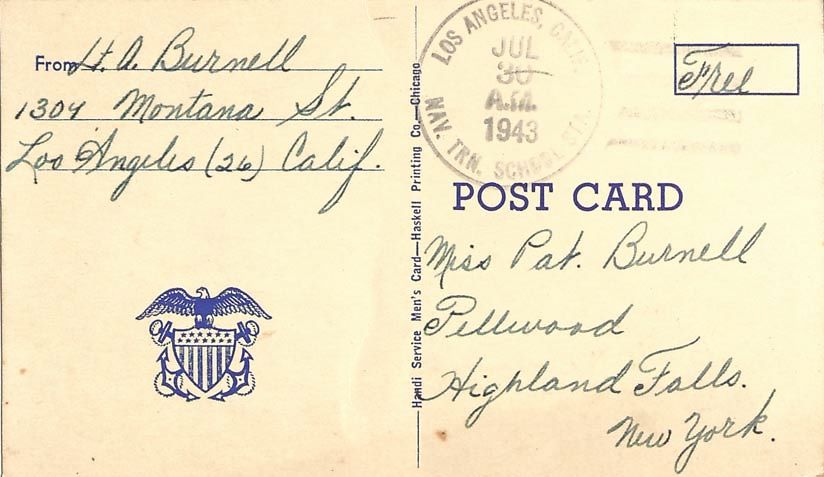 From Lt. A. Burnell
1304 Montana St.
Los Angeles (26) Calif.
Handi Service Men's Card—Haskell Printing Co.—Chicago
LOS ANGELES, CALIF.
JUL
30
A.M.
1943
NAV. TRN. SCHOOL STA.
Free
POST CARD
Miss Pat. Burnell
Pellwood
Highland Falls.
New York.